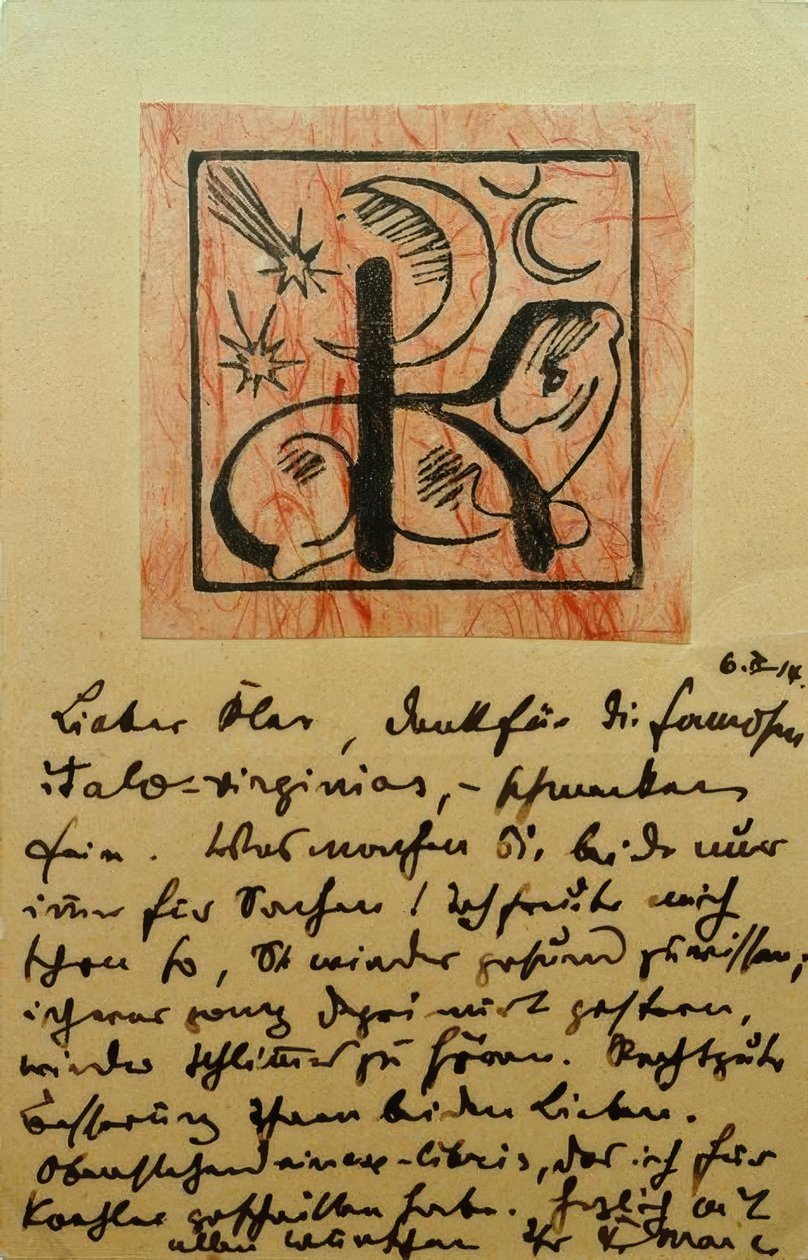 6. II 14.
Lieber Klee, dank für die famosen
italo-virginias, – schmecken
fein. Was machen Sie beide nur
immer für Sachen! Ich freute mich
schon so, Sie wieder gesund zu wissen;
ich war ganz deprimirt gestern,
wieder Schlimmes zu hören. Recht gute
Besserung Ihnen beiden Lieben.
Obenstehend ein ex-libris, das ich für
Koehler geschnitten habe. Herzlich mit
allen Wünschen Ihr F. Marc